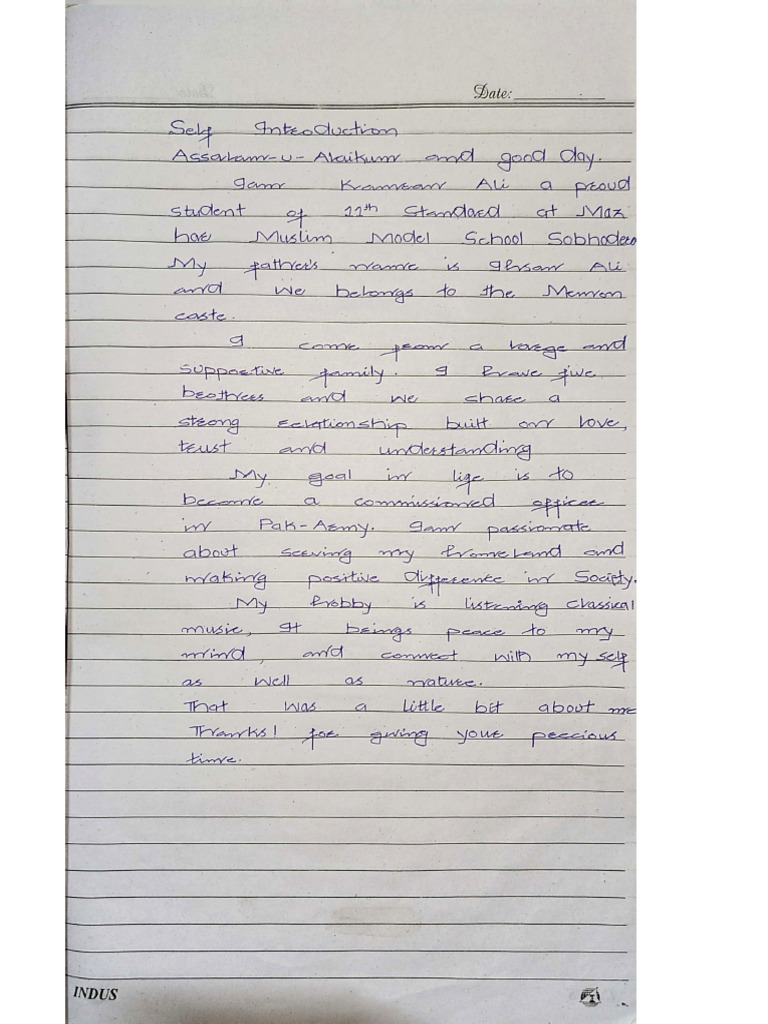 Date:
Self Introduction
Assalam-u-Alaikum and good day.
I am Kamran Ali a proud
student of 11th standard at Maz
har Muslim Model School Sobhodero
My father's name is Ihsan Ali
and we belongs to the Memon
caste.
I come from a large and
supportive family. I have five
brothers and we share a
strong relationship built on love,
trust and understanding
My goal in life is to
become a commissioned officer
in Pak-Army. I am passionate
about serving my homeland and
making positive difference in Society.
My hobby is listening classical
music, It brings peace to my
mind, and connect with my self
as well as nature.
That was a little bit about me
Thanks! for giving your precious
time.
INDUS